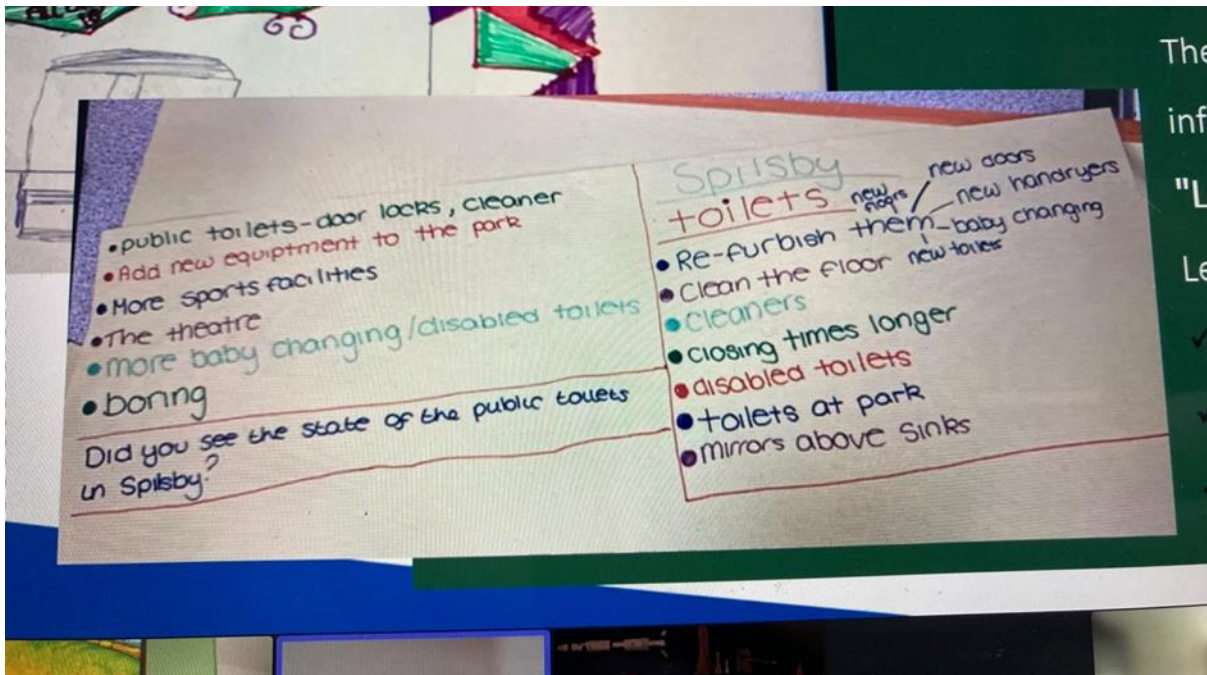 •public toilets-door locks, cleaner
•Add new equiptment to the park
•More sports facilities
•The theatre
•more baby changing/disabled toilets
•boring
Did you see the state of the public toilets
in Spilsby?
Spilsby
toilets
new doors
new floors
new handryers
•Re-furbish them-baby changing
new toilets
•Clean the floor
•Cleaners
•Closing times longer
•disabled toilets
•toilets at park
•mirrors above sinks
The
inf
"L
Le